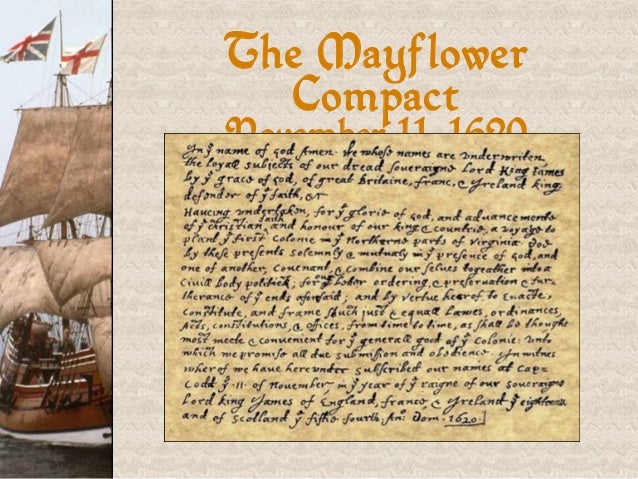 The Mayflower
Compact
November 11, 1620
In yͤ name of god Amen. We whose names are underwriten,
the loyall subjects of our dread soveraigne Lord King James
by yͤ grace of god, of great Britaine, franc, & Ireland king,
defendor of yͤ faith, &c
Haveing undertaken, for yͤ glorie of god, and advancemente
of yͤ christian faith and honour of our king & countrie, a voyage to
plant yͤ first colonie in yͤ Northerne parts of Virginia. Doe
by these presents solemnly & mutualy in yͤ presence of god, and
one of another, covenant, & combine our selves togeather into a
Civill body politick; for our better ordering, & preservation & fur-
therance of yͤ ends aforesaid; and by vertue hearof to enacte,
constitute, and frame such just & equall Lawes, ordinances,
Acts, constitutions, & offices, from time to time, as shall be thought
most meete & convenient for yͤ generall good of yͤ colonie: unto
which we promise all due submission and obedience. In witnes
wherof we have hereunder subscribed our names at Cap-
Codd yͤ ·11· of November in yͤ year of yͤ raigne of our soveraigne
Lord king James of England, france, & Ireland yͤ eighteene
and of Scotland yͤ fiftie fourth. An: Dom. 1620.